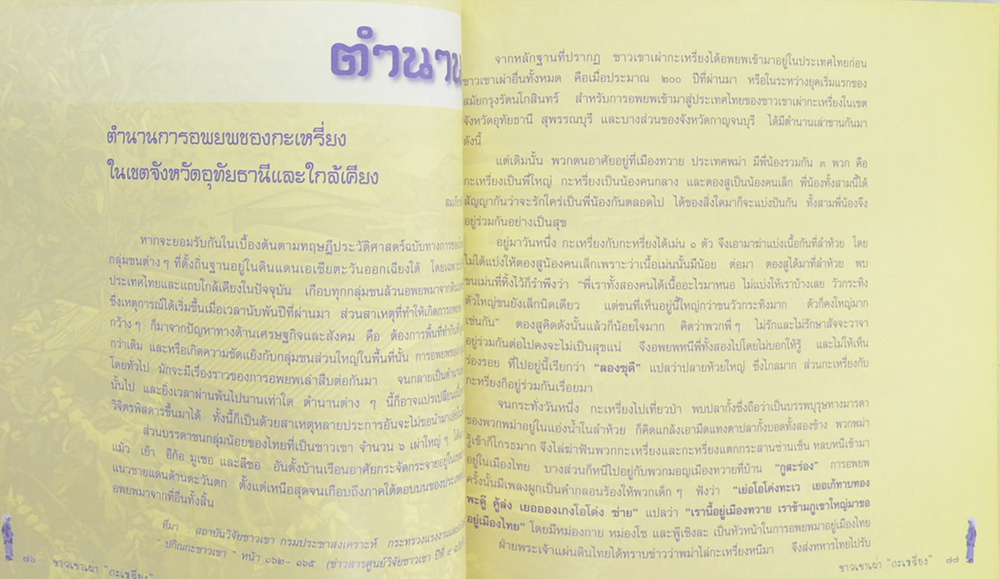 ตำนาน
ตำนานการอพยพของกะเหรี่ยง
ในเขตจังหวัดอุทัยธานีและใกล้เคียง
หากจะยอมรับกันในเบื้องต้นตามทฤษฎีประวัติศาสตร์ฉบับทางการของ
กลุ่มชนต่างๆ ที่ตั้งถิ่นฐานอยู่ในดินแดนเอเชียตะวันออกเฉียงใต้ โดยเฉพาะ
ประเทศไทยและแถบใกล้เคียงในปัจจุบัน เกือบทุกกลุ่มชนล้วนอพยพมาจาก
ซึ่งเหตุการณ์ได้เริ่มขึ้นเมื่อเวลานับพันปีที่ผ่านมา ส่วนสาเหตุที่ทำให้เกิดการอพยพ
กว้างๆ ก็มาจากปัญหาทางด้านเศรษฐกิจและสังคม คือ ต้องการพื้นที่ทำกิน
กว่าเดิม และหรือเกิดความขัดแย้งกับกลุ่มชนส่วนใหญ่ในพื้นที่นั้น การอพยพ
โดยทั่วไป มักจะมีเรื่องราวของการอพยพเล่าสืบต่อกันมา จนกลายเป็นตำนาน
นั้นไป และยิ่งเวลาผ่านพ้นไปนานเท่าใด ตำนานต่าง ๆ นี้ก็อาจแปรเปลี่ยน
วิจิตรพิสดารขึ้นมาได้ ทั้งนี้ก็เป็นด้วยสาเหตุหลายประการอันจะไม่ขอนำมา
ส่วนบรรดาชนกลุ่มน้อยของไทยที่เป็นชาวเขา จำนวน ๖ เผ่าใหญ่ๆ
แม้ว เย้า อีก้อ มูเซอ และลีซอ อันตั้งบ้านเรือนอาศัยกระจัดกระจายอยู่
แนวชายแดนด้านตะวันตก ตั้งแต่เหนือสุดจนเกือบถึงภาคใต้ตอนบนของประเทศ
อพยพมาจากที่อื่นทั้งสิ้น
ที่มา สถาบันวิจัยชาวเขา กรมประชาสงเคราะห์ กระทรวงแรงงานและ
" ปกิณกะชาวเขา " หน้า ๐๖๒- ๐๖๕ (ข่าวสารศูนย์วิจัยชาวเขา ปีที่ ๙
๘๖ ชาวเขาเผ่า "กะเหรี่ยง"
จากหลักฐานที่ปรากฏ ชาวเขาเผ่ากะเหรี่ยงได้อพยพเข้ามาอยู่ในประเทศไทยก่อน
ชาวเขาเผ่าอื่นทั้งหมด คือเมื่อประมาณ ๒๐๐ ปีที่ผ่านมา หรือในระหว่างยุคเริ่มแรกของ
สมัยกรุงรัตนโกสินทร์ สำหรับการอพยพเข้ามาสู่ประเทศไทยของชาวเขาเผ่ากะเหรี่ยงในเขต
จังหวัดอุทัยธานี สุพรรณบุรี และบางส่วนของจังหวัดกาญจนบุรี ได้มีตำนานเล่าขานกันมา
ดังนี้
แต่เดิมนั้น พวกตนอาศัยอยู่ที่เมืองทวาย ประเทศพม่า มีพี่น้องรวมกัน ๓ พวก คือ
กะเหรี่ยงเป็นพี่ใหญ่ กะเหรี่ยงเป็นน้องคนกลาง และตองสูเป็นน้องคนเล็ก พี่น้องทั้งสามนี้ได้
สัญญากันว่าจะรักใคร่เป็นพี่น้องกันตลอดไป ได้ของสิ่งใดมาก็จะแบ่งปันกัน ทั้งสามพี่น้องจึง
อยู่ร่วมกันอย่างเป็นสุข
อยู่มาวันหนึ่ง กะเหรี่ยงกับกะเหรี่ยงได้เม่น ๑ ตัว จึงเอามาฆ่าแบ่งเนื้อกันที่ลำห้วย โดย
ไม่ได้แบ่งให้ตองสูน้องคนเล็กเพราะว่าเนื้อเม่นนั้นมีน้อย ต่อมา ตองสูได้มาที่ลำห้วย พบ
ขนเม่นที่ทิ้งไว้ก็รำพึงว่า "พี่เราทั้งสองคนได้เนื้ออะไรมาหนอ ไม่แบ่งให้เราบ้างเลย วัวกระทิง
ตัวใหญ่ขนยังเล็กนิดเดียว แต่ขนที่เห็นอยู่นี้ใหญ่กว่าขนวัวกระทิงมาก ตัวก็คงใหญ่มาก
เช่นกัน" ตองสูคิดดังนั้นแล้วก็น้อยใจมาก คิดว่าพวกพี่ๆ ไม่รักและไม่รักษาสัจจะวาจา
อยู่ร่วมกันต่อไปคงจะไม่เป็นสุขแน่ จึงอพยพหนีพี่ทั้งสองไปโดยไม่บอกให้รู้ และไม่ให้เห็น
ร่องรอย ที่ไปอยู่นี้เรียกว่า "ลองซุดี" แปลว่าปลายห้วยใหญ่ ซึ่งไกลมาก ส่วนกะเหรี่ยงกับ
กะเหรี่ยงก็อยู่ร่วมกันเรื่อยมา
จนกระทั่งวันหนึ่ง กะเหรี่ยงไปเที่ยวป่า พบปลากั้งซึ่งถือว่าเป็นบรรพบุรุษทางมารดา
ของพวกพม่าอยู่ในแอ่งน้ำในลำห้วย ก็คิดแกล้งเอามีดแทงตาปลากั้งบอดทั้งสองข้าง พวกพม่า
รู้เข้าก็โกรธมาก จึงไล่ฆ่าฟันพวกกะเหรี่ยงและกะเหรี่ยงแตกกระสานซ่านเซ็น หลบหนีเข้ามา
อยู่ในเมืองไทย บางส่วนก็หนีไปอยู่กับพวกมอญเมืองทวายที่บ้าน "กูสะร่อง" การอพยพ
ครั้งนั้นมีเพลงผูกเป็นคำกลอนร้องให้พวกเด็กๆ ฟังว่า "เย่อโอโด่งทะเว เยอเก้ทาบทอง
พะอู๊ คู้ล่ง เยอออองเกงโอโด่ง ช่าย" แปลว่า "เรานี้อยู่เมืองทวาย เราข้ามภูเขาใหญ่มาขอ
อยู่เมืองไทย" โดยมีหม่องกาย หม่องโซ และพู้เชิงละ เป็นหัวหน้าในการอพยพมาอยู่เมืองไทย
ฝ่ายพระเจ้าแผ่นดินไทยได้ทราบข่าวว่าพม่าไล่กะเหรี่ยงหนีมา จึงส่งทหารไทยไปรับ
ชาวเขาเผ่า "กะเหรี่ยง" ๘๗